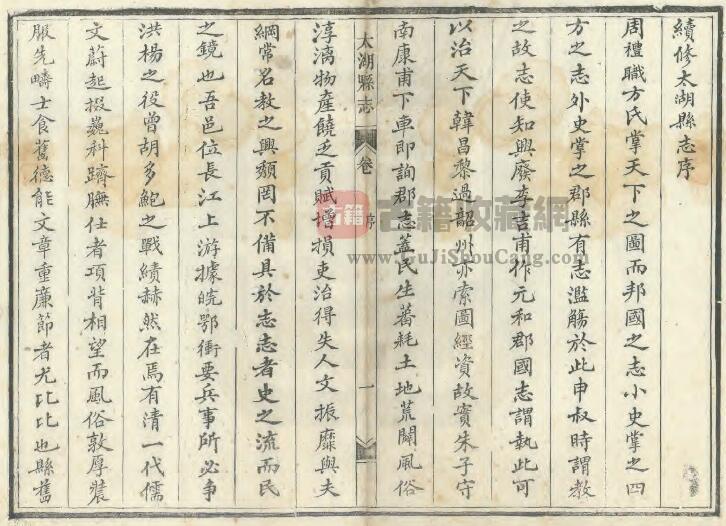 續修太湖縣志序
周禮職方氏掌天下之圖而邦國之志小史掌之四
方之志外史掌之郡縣有志濫觴於此申叔時謂教
之故志使知興廢李吉甫作元和郡國志謂執此可
以治天下韓昌黎過韶州亦索圖經資故實朱子守
南康甫下車即詢郡志蓋民生蕃耗土地荒闢風俗
太湖縣志
卷
序
一
淳漓物產饒乏貢賦增損吏治得失人文振靡與夫
綱常名教之興頹罔不備具於志志者史之流而民
之鏡也吾邑位長江上游據皖鄂衝要兵事所必爭
洪楊之役曾胡多鮑之戰績赫然在焉有清一代儒
文蔚起掇巍科躋膴仕者項背相望而風俗敦厚裝
服先疇士食舊德能文章重廉節者尤比比也縣舊
古籍
古籍收藏網
www.GuJiShouCang.com